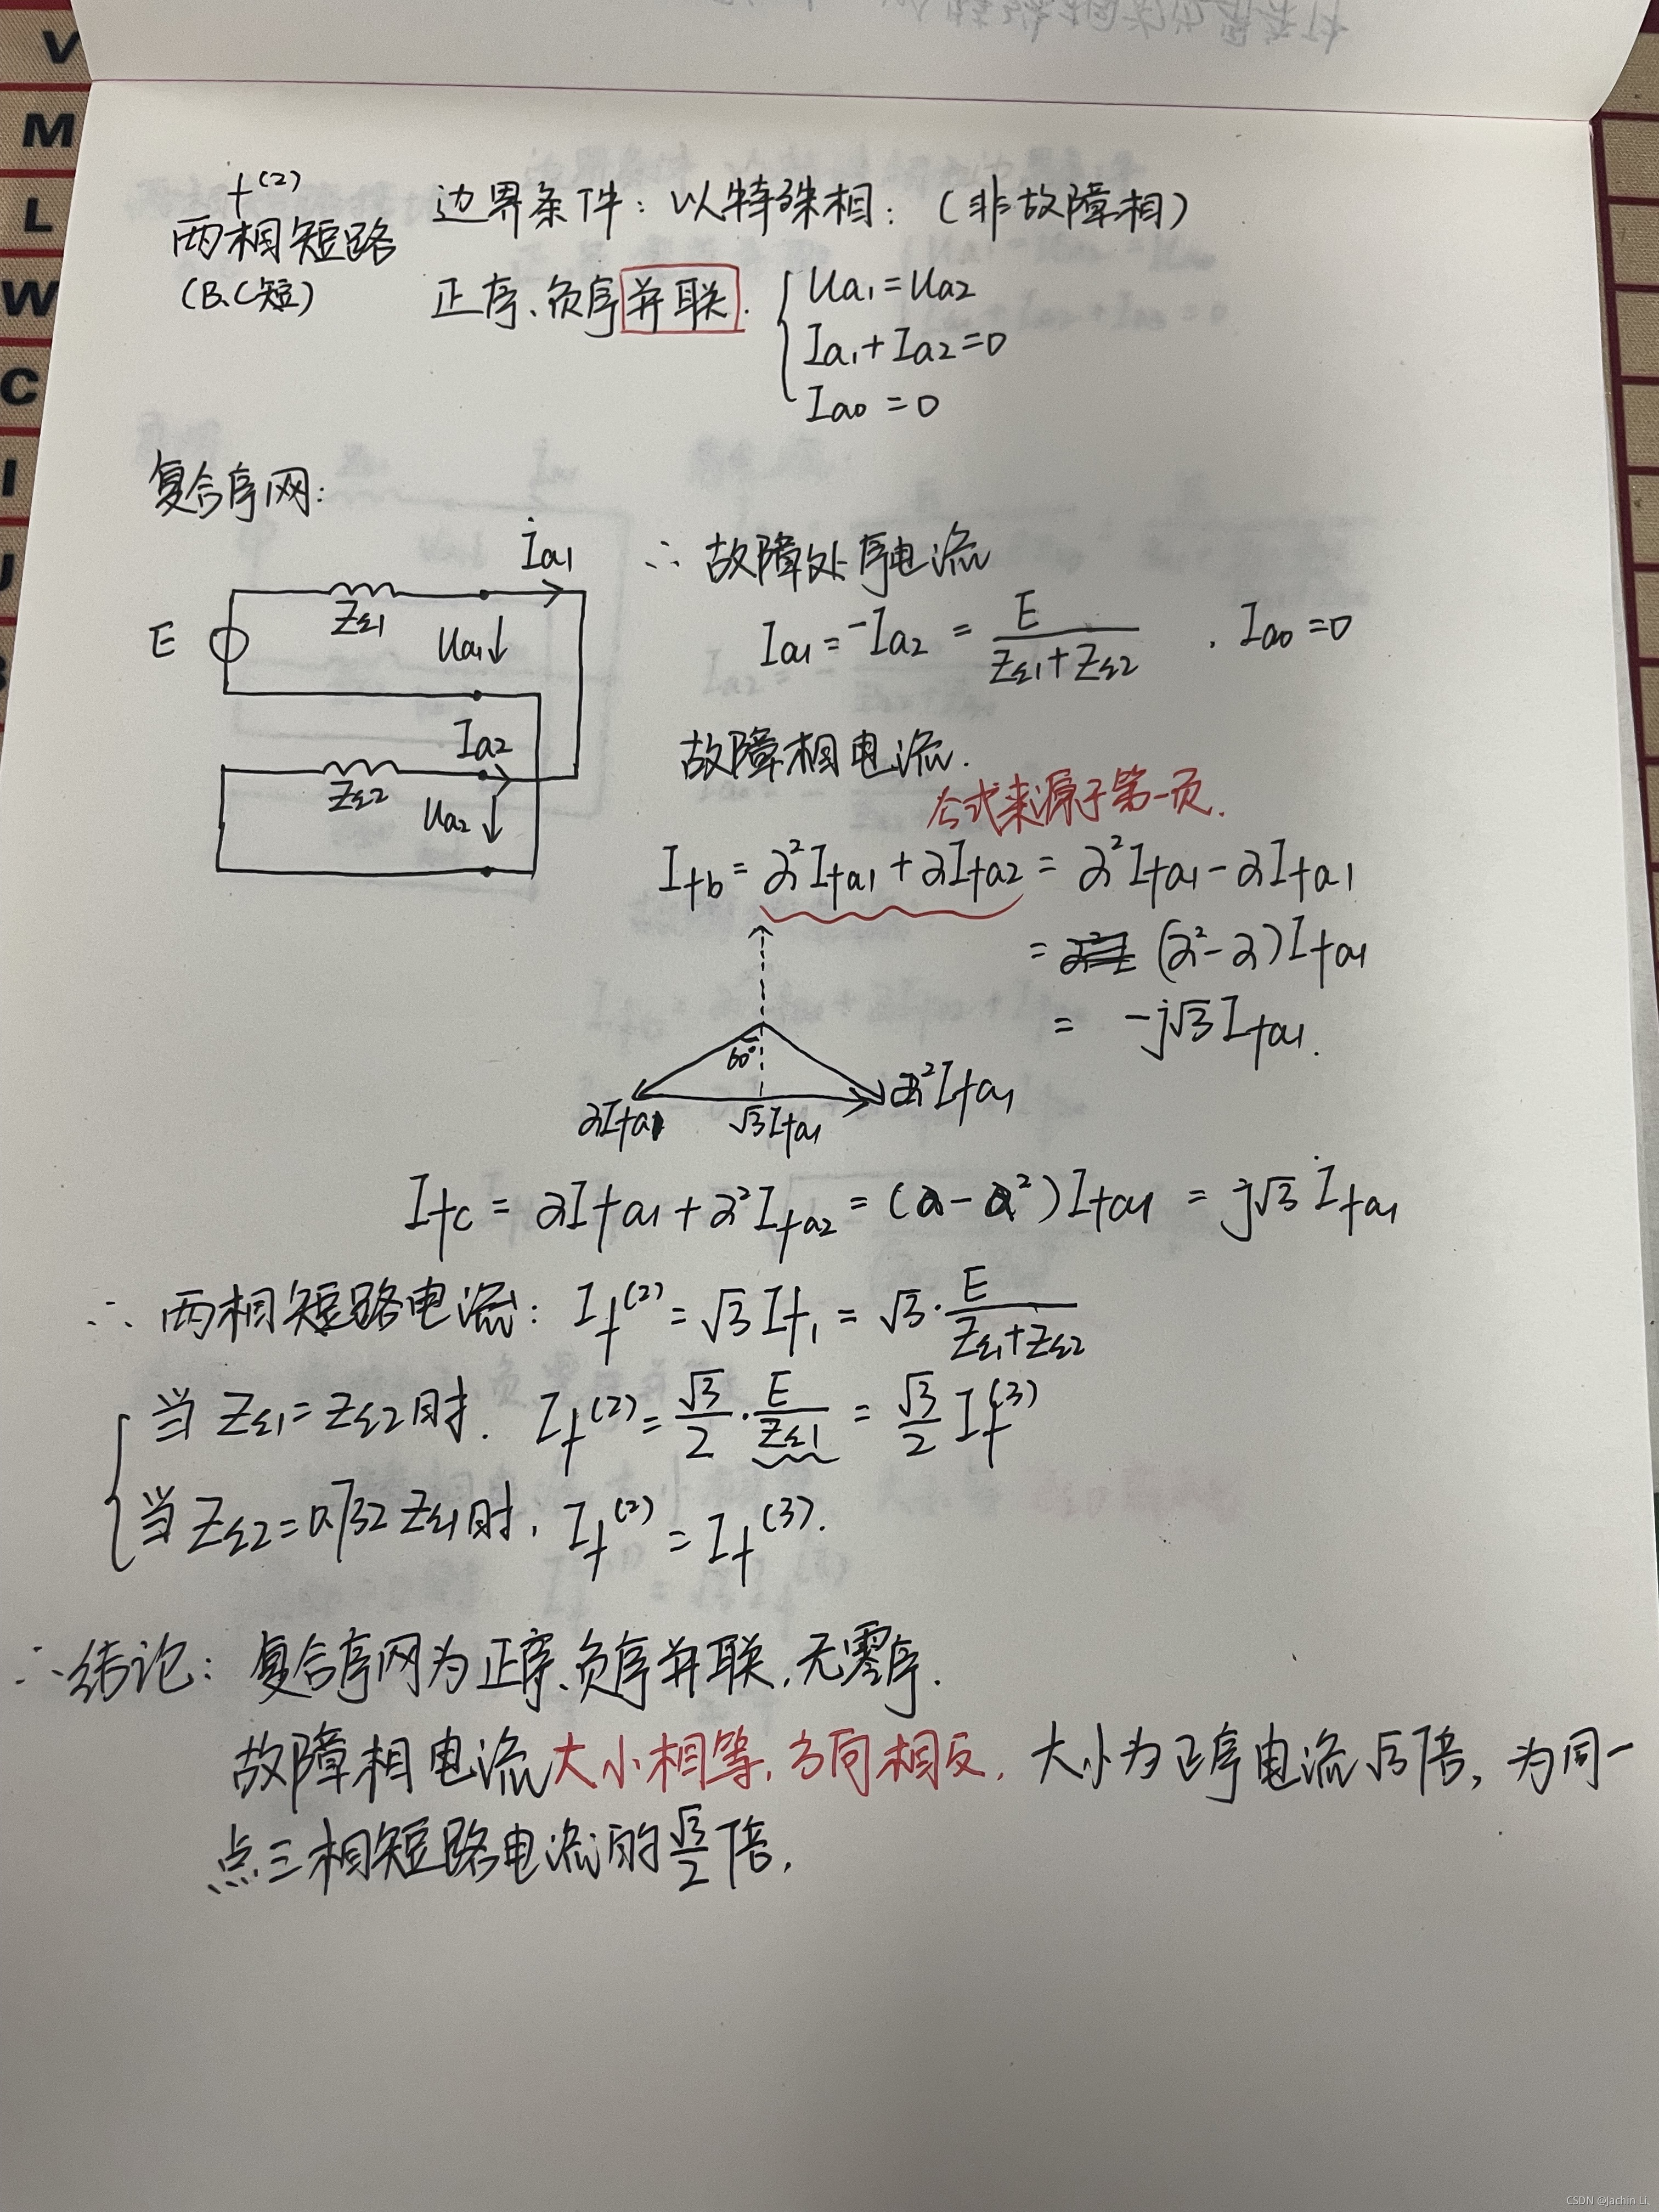 V
M
L
W
C
I
U
f⁽²⁾
两相短路
(B.C短)
边界条件: 以特殊相: (非故障相)
正序、负序并联.
Ua₁=Ua₂
Ia₁+Ia₂=0
Ia₀=0
复合序网:
İa1
E
ZΣ1
Ua1↓
Ia2
ZΣ2
Ua2↓
∴ 故障处序电流
Ia1=-Ia2=E/(ZΣ1+ZΣ2) . Ia0=0
故障相电流.
公式来源于第一页.
Ifb=α²Ifa1+αIfa2=α²Ifa1-αIfa1
=(α²-α)Ifa1
= -j√3Ifa1.
60°
αIfa1
√3Ifa1
α²Ifa1
Ifc=αIfa1+α²Ifa2=(α-α²)Ifa1=j√3İfa1
∴ 两相短路电流: If⁽²⁾=√3If1=√3·E/(ZΣ1+ZΣ2)
当ZΣ1=ZΣ2时. If⁽²⁾=√3/2·E/ZΣ1=√3/2 If⁽³⁾
当ZΣ2=0.732ZΣ1时, If⁽²⁾=If⁽³⁾.
∴结论: 复合序网为正序、负序并联,无零序.
故障相电流大小相等,方向相反, 大小为正序电流√3倍, 为同一
点三相短路电流的√3/2倍,
CSDN @Jachin Li、